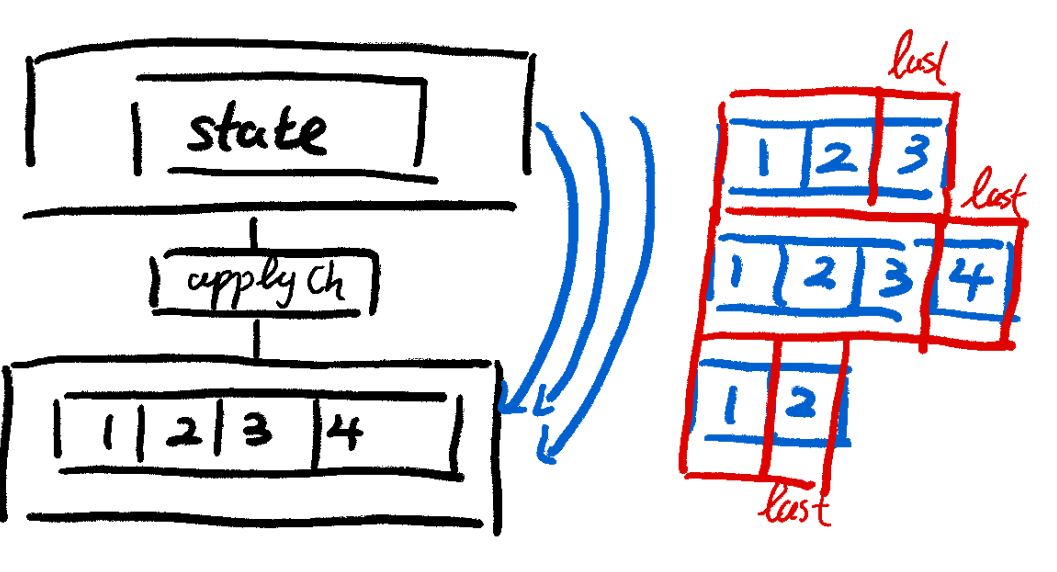 state
apply Ch
1 2 3 4
last
1 2 3
last
1 2 3 4
1 2
last